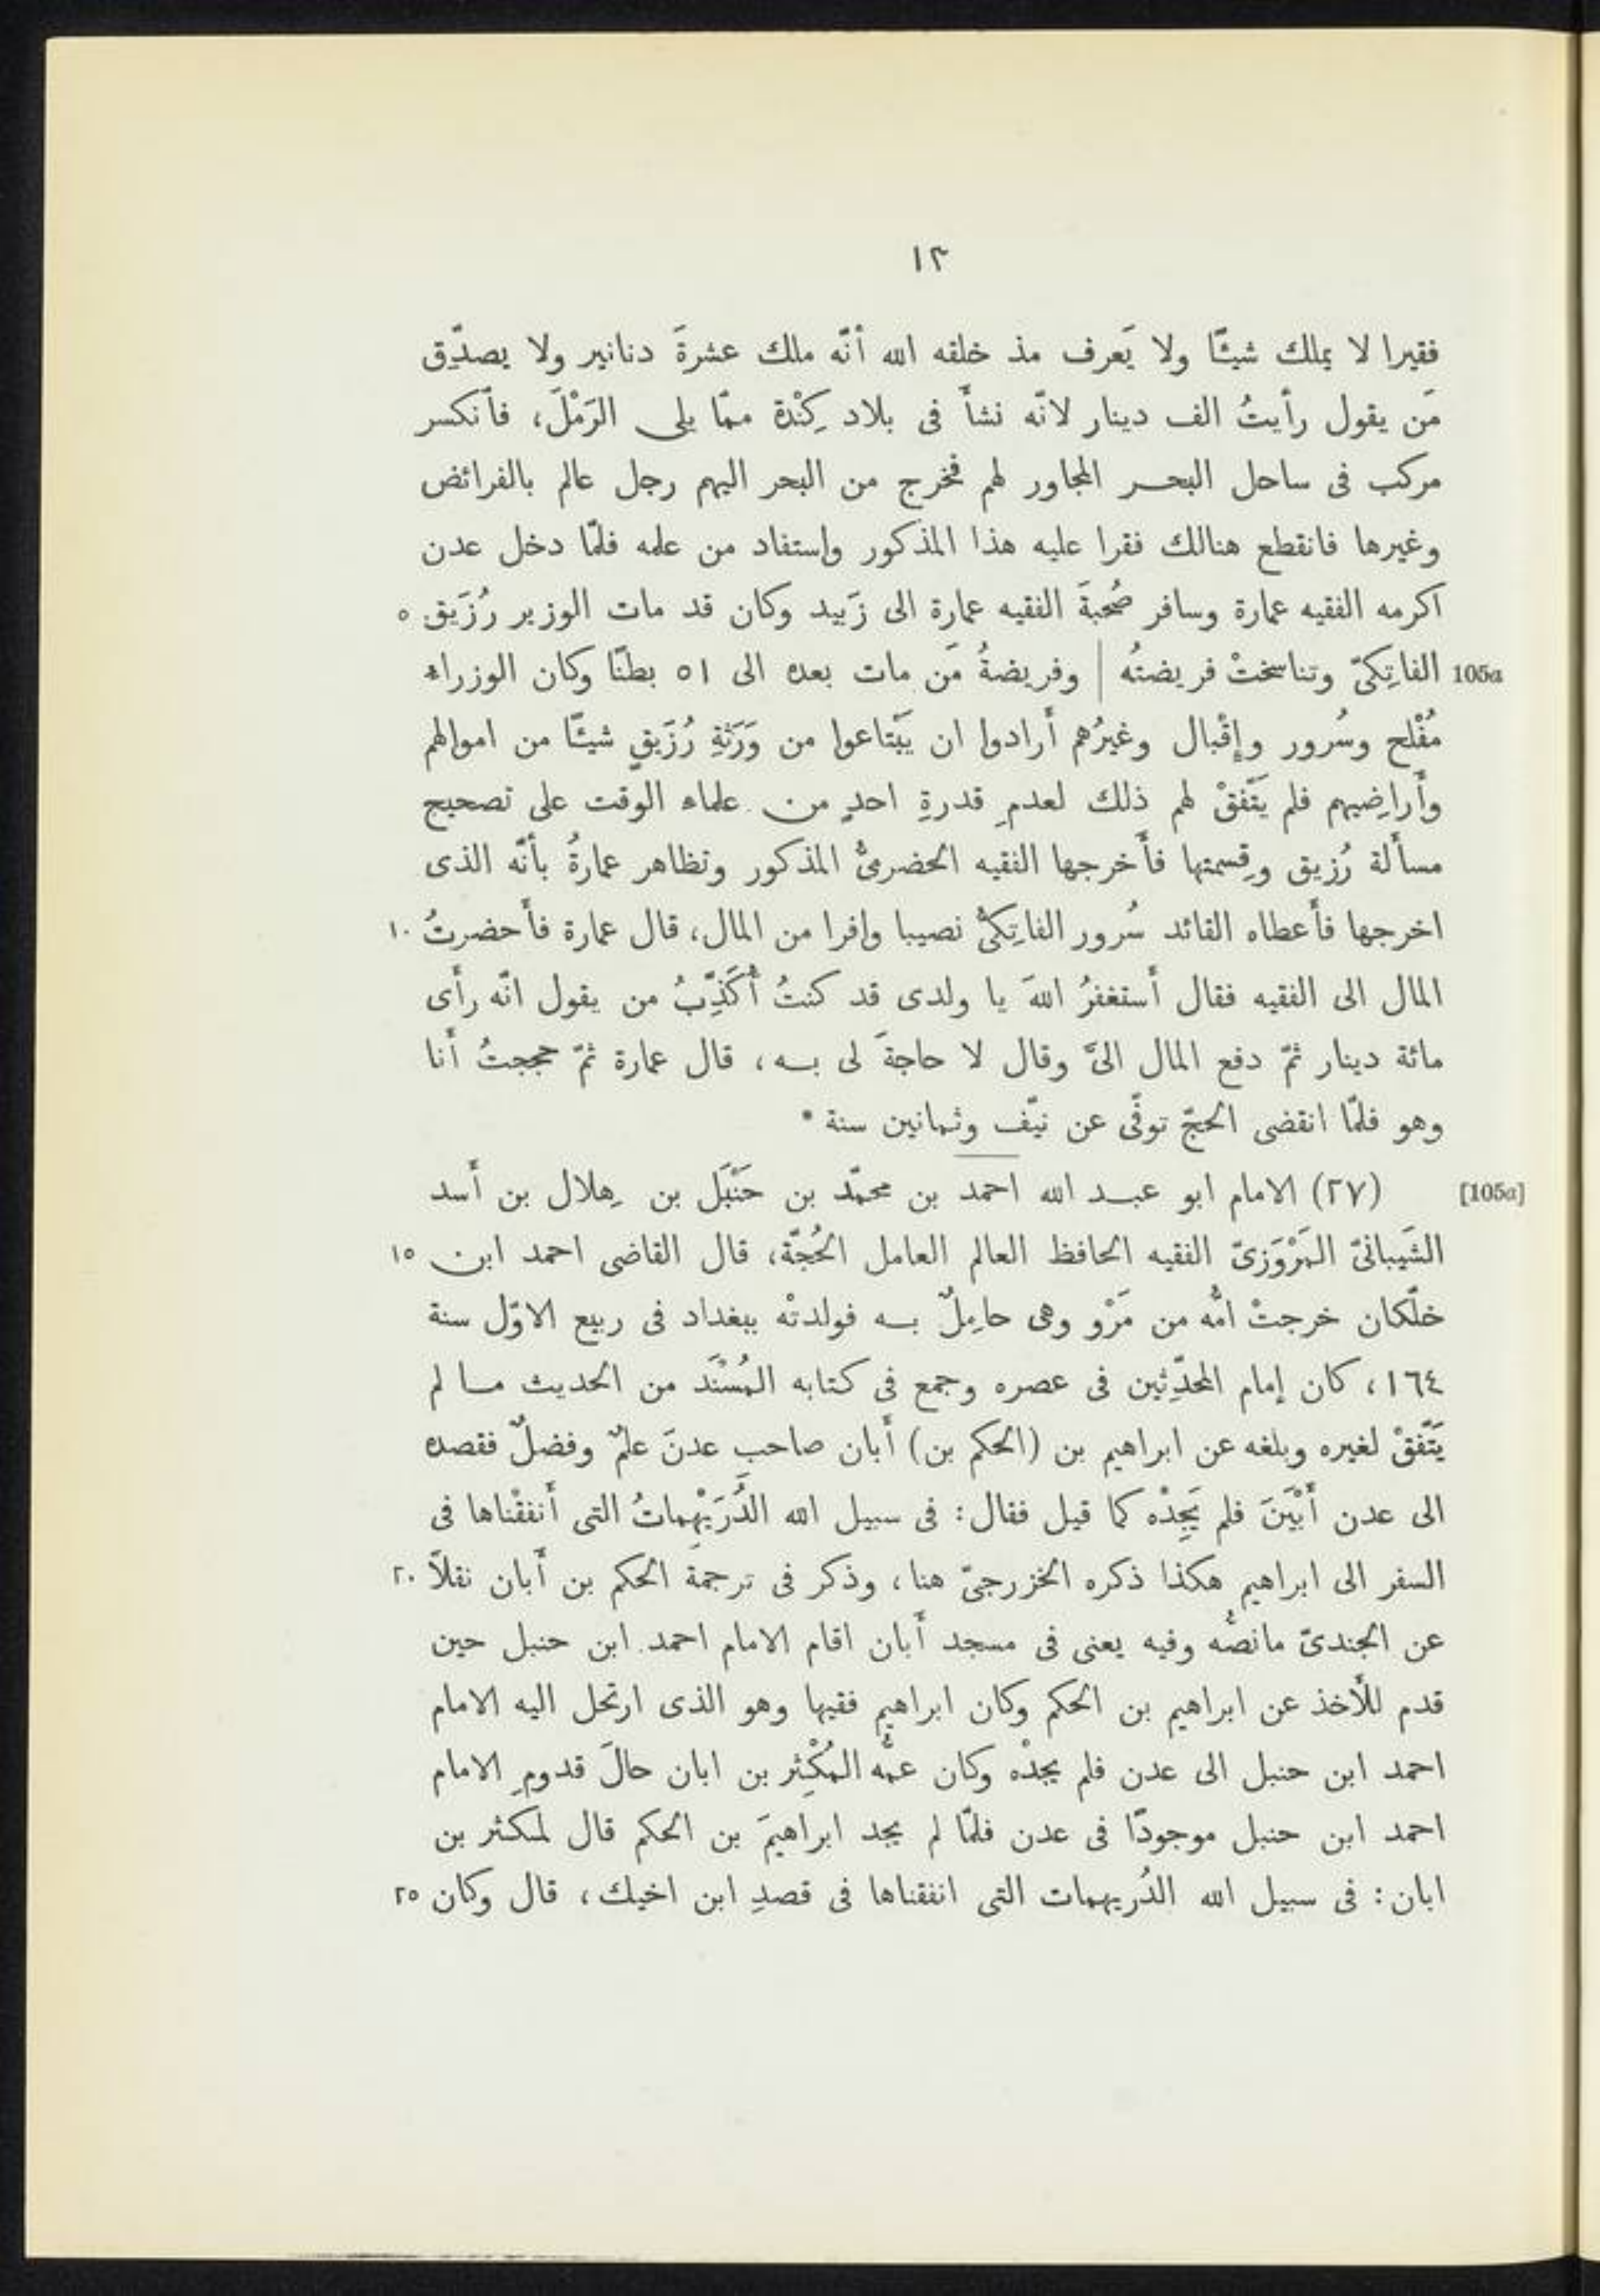 ١٢
فقيرا لا يملك شيئًا ولا يَعرف مذ خلقه الله أنّه ملك عشرةَ دنانير ولا يصدّق
مَن يقول رأيتُ الف دينار لانّه نشأَ فى بلاد كِنْدة ممّا يلى الرَمْلَ، فأنكسر
مركب فى ساحل البحر المجاور لهم فخرج من البحر اليهم رجل عالم بالفرائض
وغيرها فانقطع هنالك فقرا عليه هذا المذكور واستفاد من علمه فلمّا دخل عدن
اكرمه الفقيه عمارة وسافر صُحبةَ الفقيه عمارة الى زَبيد وكان قد مات الوزير رُزَيق ٥
105a الفاتِكىّ وتناسختْ فريضتُه | وفريضةُ مَن مات بعده الى ٥١ بطنًا وكان الوزراء
مُفْلح وسُرور وإقْبال وغيرُهم أَرادوا ان يَبْتاعوا من وَرَثةِ رُزَيقٍ شيئًا من اموالهم
وأَراضِيهم فلم يَتّفقْ لهم ذلك لعدمِ قدرةِ احدٍ من علماء الوقت على تصحيح
مسألة رُزيق وقِسمتها فأَخرجها الفقيه الحضرمىُّ المذكور وتظاهر عمارةُ بأنّه الذى
اخرجها فأَعطاه القائد سُرور الفاتِكىُّ نصيبا وافرا من المال، قال عمارة فأَحضرتُ ١٠
المال الى الفقيه فقال أَستغفرُ اللهَ يا ولدى قد كنتُ أُكَذِّبُ من يقول انّه رأَى
مائة دينار ثمّ دفع المال الىَّ وقال لا حاجةَ لى به، قال عمارة ثمّ حججتُ أَنا
وهو فلمّا انقضى الحجّ توفّى عن نيّف وثمانين سنة *
[105a] (٢٧) الامام ابو عبد الله احمد بن محمّد بن حَنْبَل بن هِلال بن أَسد
الشَيبانىّ المَرْوَزىّ الفقيه الحافظ العالم العامل الحُجّة، قال القاضى احمد ابن ١٥
خلّكان خرجتْ امُّه من مَرْو وهى حامِلٌ به فولدتْه ببغداد فى ربيع الاوّل سنة
١٦٤، كان إمام المحدِّثين فى عصره وجمع فى كتابه المُسْنَد من الحديث ما لم
يَتّفقْ لغيره وبلغه عن ابراهيم بن (الحكم بن) أَبان صاحب عدنَ علمٌ وفضلٌ فقصده
الى عدن أَبْيَنَ فلم يَجِدْه كما قيل فقال: فى سبيل الله الدُّرَيْهِماتُ التى أَنفقْناها فى
السفر الى ابراهيم هكذا ذكره الخزرجىّ هنا، وذكر فى ترجمة الحكم بن أَبان نقلاً ٢٠
عن الجندىّ مانصُّه وفيه يعنى فى مسجد أَبان اقام الامام احمد ابن حنبل حين
قدم للأَخذ عن ابراهيم بن الحكم وكان ابراهيم فقيها وهو الذى ارتحل اليه الامام
احمد ابن حنبل الى عدن فلم يجدْه وكان عمُّه المُكْثِر بن ابان حالَ قدومِ الامام
احمد ابن حنبل موجودًا فى عدن فلمّا لم يجد ابراهيمَ بن الحكم قال لمكثر بن
ابان: فى سبيل الله الدُريهمات التى انفقناها فى قصدِ ابن اخيك، قال وكان ٢٥